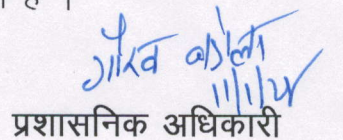 गौरव
11/1/24
प्रशासनिक अधिकारी